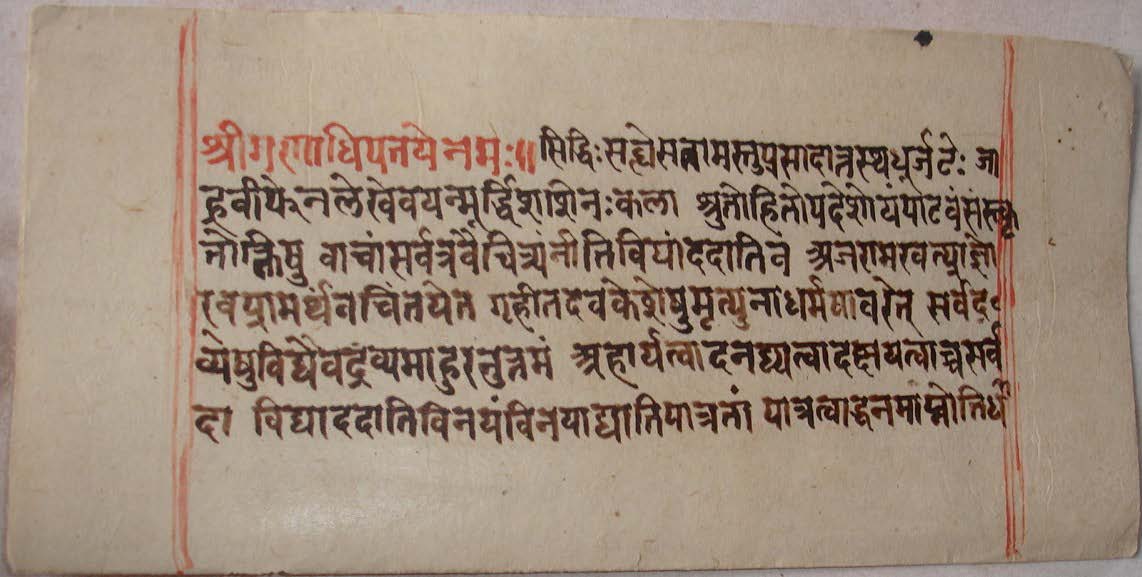 श्रीगणाधिपतये नमः॥ सिद्धिः सद्ध्येसतामस्तुप्रसादात्तस्यधूर्जटेः जा
ह्नवीफेनलेखेवयन्मूर्द्ध्निशशिनः कला श्रुतोहितोपदेशोयंपाटवंसंस्कृ
तोक्तिषु वाचांसर्वत्रवैचित्र्यंनीतिविद्यांददातिच अजरामरवत्प्राज्ञो
र्थंचचिंतयेत गृहीतइवकेशेषुमृत्युनाधर्ममाचरेत् सर्वद्र
व्येषुविद्यैवद्रव्यमाहुरनुत्तमं अहार्यत्वादनर्घ्यत्वादक्षयत्वाच्चसर्व
दा विद्याददातिविनयंविनयाद्यातिपात्रतां पात्रत्वाद्धनमाप्नोतिध